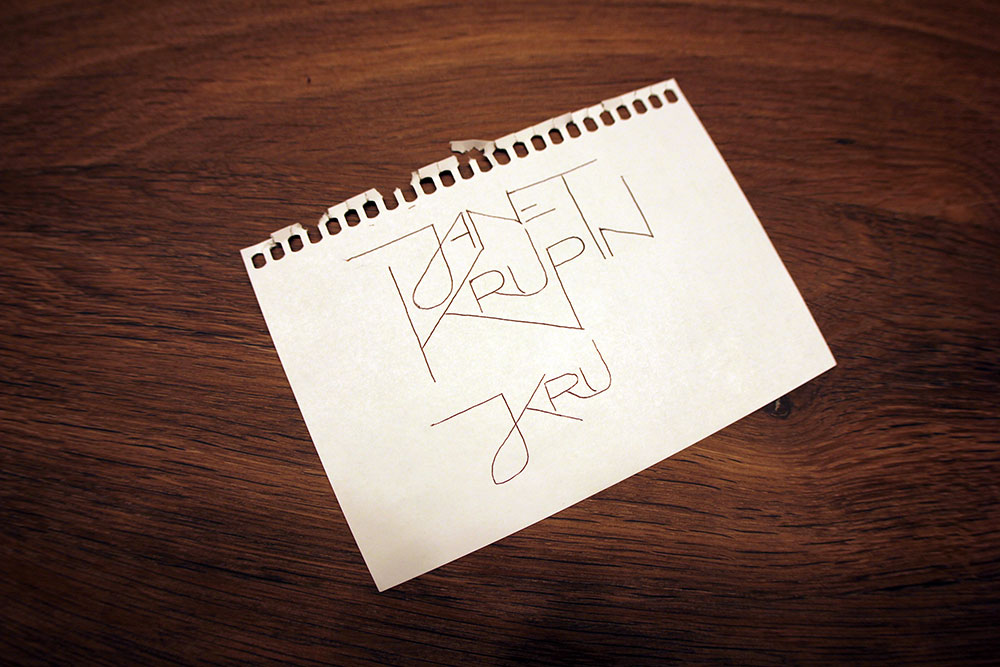 JANET
KRUPIN
JKRU